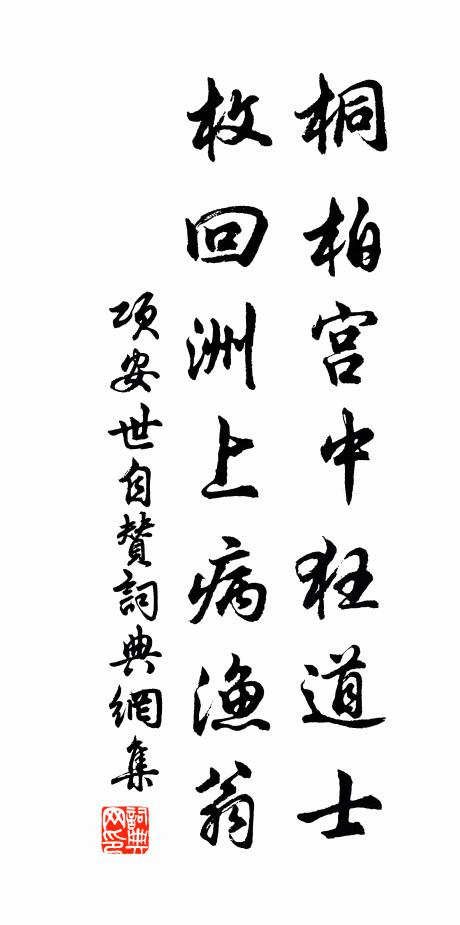 桐柏宫中狂道士
枚回洲上病漁翁
项安世自贊詞典網集
詞典網印